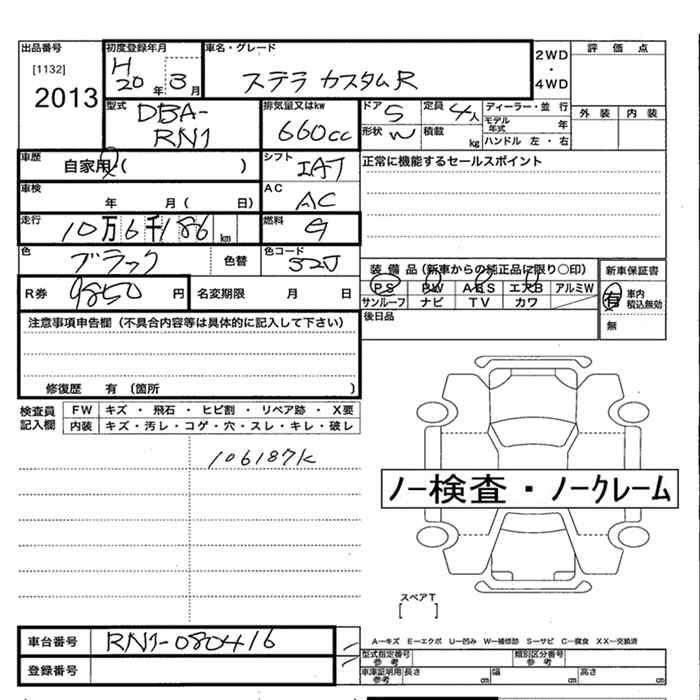 出品番号 初度登録年月 車名・グレード 2WD ・ 4WD 評価点
[1132] H 20年 3月 ステラ カスタムR
2013 外装 内装
型式 DBA-RN1 排気量又はkw 660cc ドア 5 定員 4人 ディーラー・並行
形状 W 積載 kg モデル年式 年
ハンドル 左・右
車歴 自家用・( ) シフト IAT 正常に機能するセールスポイント
車検 年 月( 日) AC AC
走行 10万6千186km 燃料 G
色 ブラック 色替 色コード 32J
装備品(新車からの純正品に限り○印) 新車保証書
R券 9850円 名変期限 月 日 PS PW ABS エアB アルミW 有 車内積込無効
サンルーフ ナビ TV カワ
注意事項申告欄(不具合内容等は具体的に記入して下さい) 後日品 無
修復歴 有 (箇所 )
検査員記入欄 FW キズ・飛石・ヒビ割・リペア跡・X要
内装 キズ・汚レ・コゲ・穴・スレ・キレ・破レ
106187K
ノー検査・ノークレーム
スペアT
[ ]
A—キズ E—エクボ U—凹み W—補修跡 S—サビ C—腐食 XX—交換済
車台番号 RN1-080416 型式指定番号 参考 類別区分番号 参考
登録番号 車庫証明用 参考 長さ cm 幅 cm 高さ cm